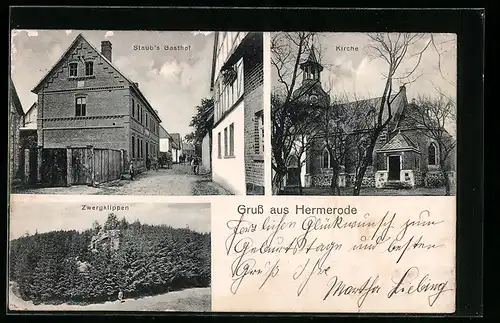 Staub's Gasthof
Kirche
Zwergklippen
Gruß aus Hermerode
Herzlichen Glückwunsch zum
Geburtstage und besten
Gruß Ihre
Martha Liebing